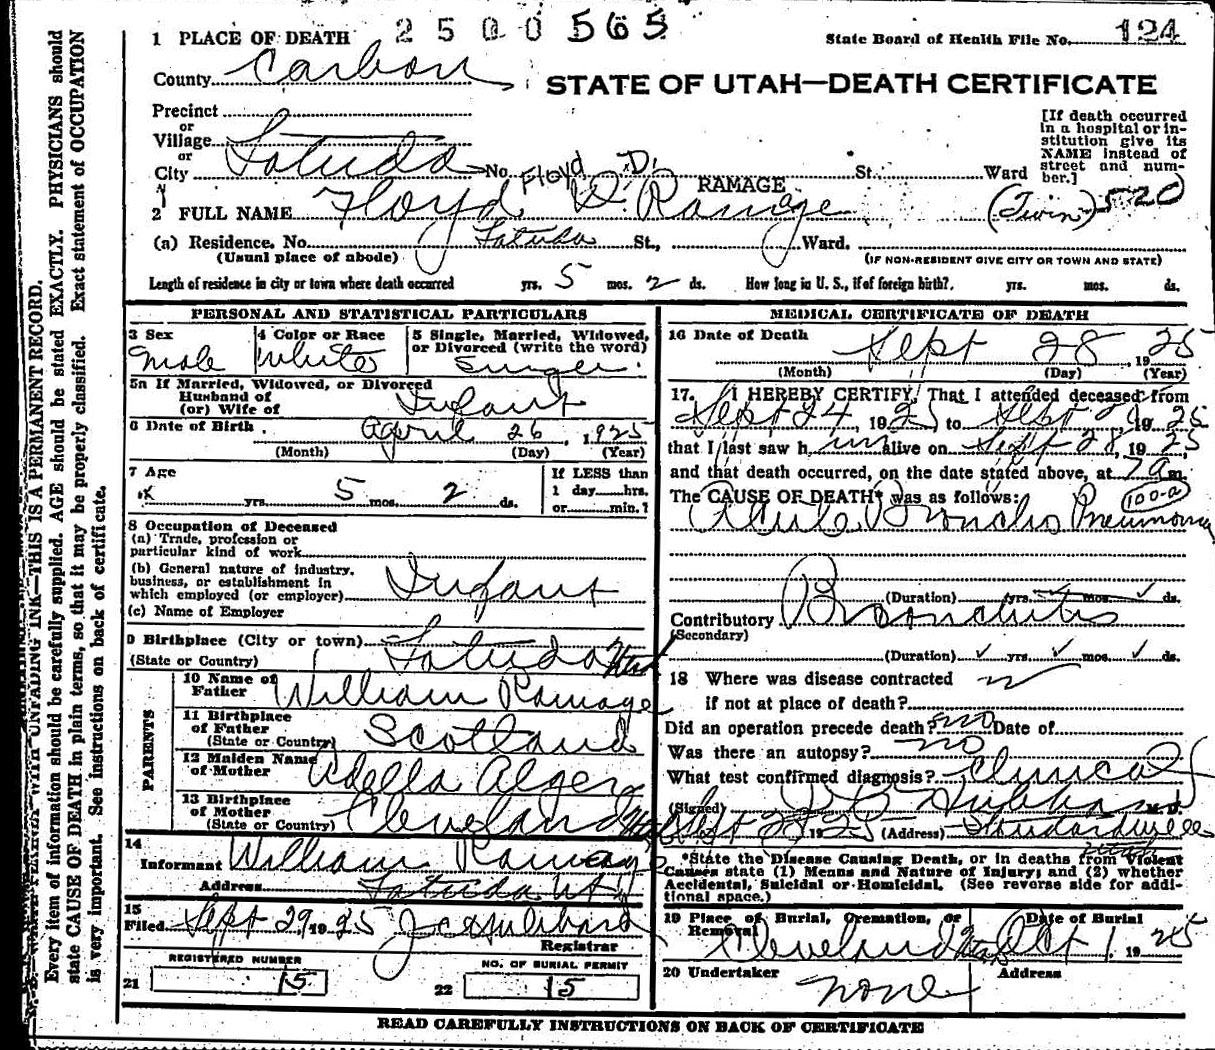 2500565
1 PLACE OF DEATH
State Board of Health File No. 124
County Carbon
STATE OF UTAH—DEATH CERTIFICATE
Precinct
or
Village
or
City Latuda No. St. Ward
[If death occurred in a hospital or institution give its NAME instead of street and number.]
Floyd D. RAMAGE
2 FULL NAME Floyd D. Ramage (Twin) 520
(a) Residence. No. Latuda St., Ward.
(Usual place of abode) (IF NON-RESIDENT GIVE CITY OR TOWN AND STATE)
Length of residence in city or town where death occurred yrs. 5 mos. 2 ds. How long in U. S., if of foreign birth? yrs. mos. ds.
PERSONAL AND STATISTICAL PARTICULARS
3 Sex 4 Color or Race 5 Single, Married, Widowed, or Divorced (write the word)
Male White Single.
5a If Married, Widowed, or Divorced
Husband of
(or) Wife of Infant
6 Date of Birth April 26, 1925
(Month) (Day) (Year)
7 Age If LESS than
x yrs. 5 mos. 2 ds. 1 day hrs.
or min.?
8 Occupation of Deceased
(a) Trade, profession or
particular kind of work
(b) General nature of industry,
business, or establishment in
which employed (or employer) Infant
(c) Name of Employer
9 Birthplace (City or town) Latuda Utah
(State or Country)
PARENTS
10 Name of Father William Ramage
11 Birthplace of Father Scotland
(State or Country)
12 Maiden Name of Mother Adella Alger
13 Birthplace of Mother Cleveland Utah
(State or Country)
14
Informant William Ramage
Address Latuda Ut
15
Filed Sept 29, 1925
Registrar
REGISTERED NUMBER NO. OF BURIAL PERMIT
21 15 22 15
MEDICAL CERTIFICATE OF DEATH
16 Date of Death Sept 28, 1925
(Month) (Day) (Year)
17. I HEREBY CERTIFY, That I attended deceased from
Sept 24, 1925, to Sept 1925
that I last saw h im alive on Sept 28, 1925,
and that death occurred, on the date stated above, at 7 a m.
The CAUSE OF DEATH* was as follows: 100-a
Acute Broncho Pneumonia
(Duration) yrs. mos. ds.
Contributory Bronchitis
(Secondary)
(Duration) yrs. mos. ds.
18 Where was disease contracted
if not at place of death?
Did an operation precede death? no Date of
Was there an autopsy? no
What test confirmed diagnosis? Clinical
(Signed) M. D.
Sept 29 1925 (Address) Standardville
Utah
*State the Disease Causing Death, or in deaths from Violent
Causes state (1) Means and Nature of Injury; and (2) whether
Accidental, Suicidal or Homicidal. (See reverse side for addi-
tional space.)
19 Place of Burial, Cremation, or Removal Date of Burial
Cleveland Utah Oct 1, 1925
20 Undertaker Address
none
READ CAREFULLY INSTRUCTIONS ON BACK OF CERTIFICATE
UNFADING INK—THIS IS A PERMANENT RECORD.
Every item of information should be carefully supplied. AGE should be stated EXACTLY. PHYSICIANS should
state CAUSE OF DEATH in plain terms, so that it may be properly classified. Exact statement of OCCUPATION
is very important. See instructions on back of certificate.